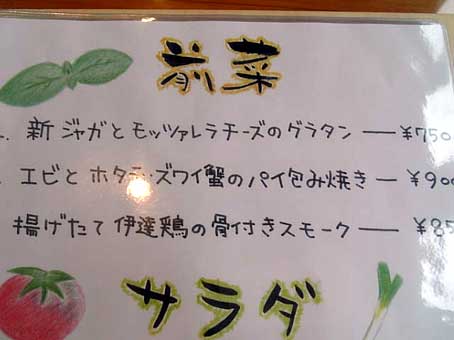 前菜
新ジャガとモッツァレラチーズのグラタン ― ¥750
エビとホタ ズワイ蟹のパイ包み焼き ― ¥900
揚げたて伊達鶏の骨付きスモーク ― ¥85
サラダ